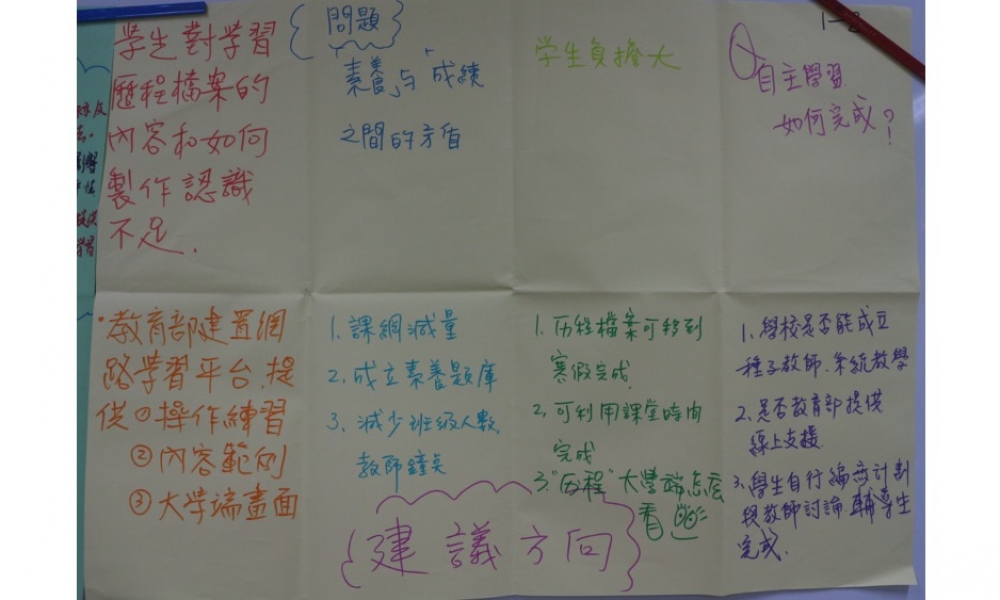 1-2
問題
學生對學習
歷程檔案的
內容和如何
製作認識
不足.
素養与成績
之間的矛盾
学生負擔大
Q自主學習
如何完成?
·教育部建置網
路學習平台.提
供①操作練習
②內容範例
③大学端畫面
1.課綱減量
2.成立素養題庫
3.減少班級人數
教師鐘点
1.历程檔案可移到
寒假完成.
2.可利用課堂時间
完成
3."历程"大學端怎広
看
1.學校是否能成立
種子教師.系統教學
2.是否教育部提供
線上支援
3.學生自行編產計劃
與教師討論輔導生
完成.
建議方向